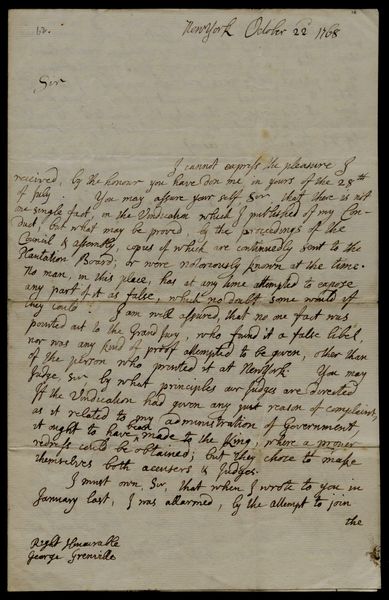 62.
NewYork October 22d 1768
Sir
I cannot express the pleasure I
received, by the honour you have don me, in yours of the 28th
of July. You may assure your self, Sir, that there is not
one single fact, in the Vindication which I published of my Con-
duct, but what may be proved, by the proceedings of the
Council & assembly, copies of which are continually sent to the
Plantation Board; or were notoriously known at the time.
No man, in this place, has at any time attempted to expose
any part of it as false, which no doubt some would if
they could. I am well assured, that no one fact was
pointed out to the Grand Jury, who found it a false libel,
nor was any kind of proof attempted to be given, other than
of the person who printed it at NewYork. You may
Judge, Sir, by what principles our Judges are directed
If the Vindication had given any just reason of complaint,
as it related to my administration of Government
it ought to have been made to the King; where a proper
redress could be obtained; but they chose to make
themselves both accusers & Judges.
I must own, Sir, that when I wrote to you in
January last, I was allarmed, by the attempt to join
the
Right Honourable
George Grenville